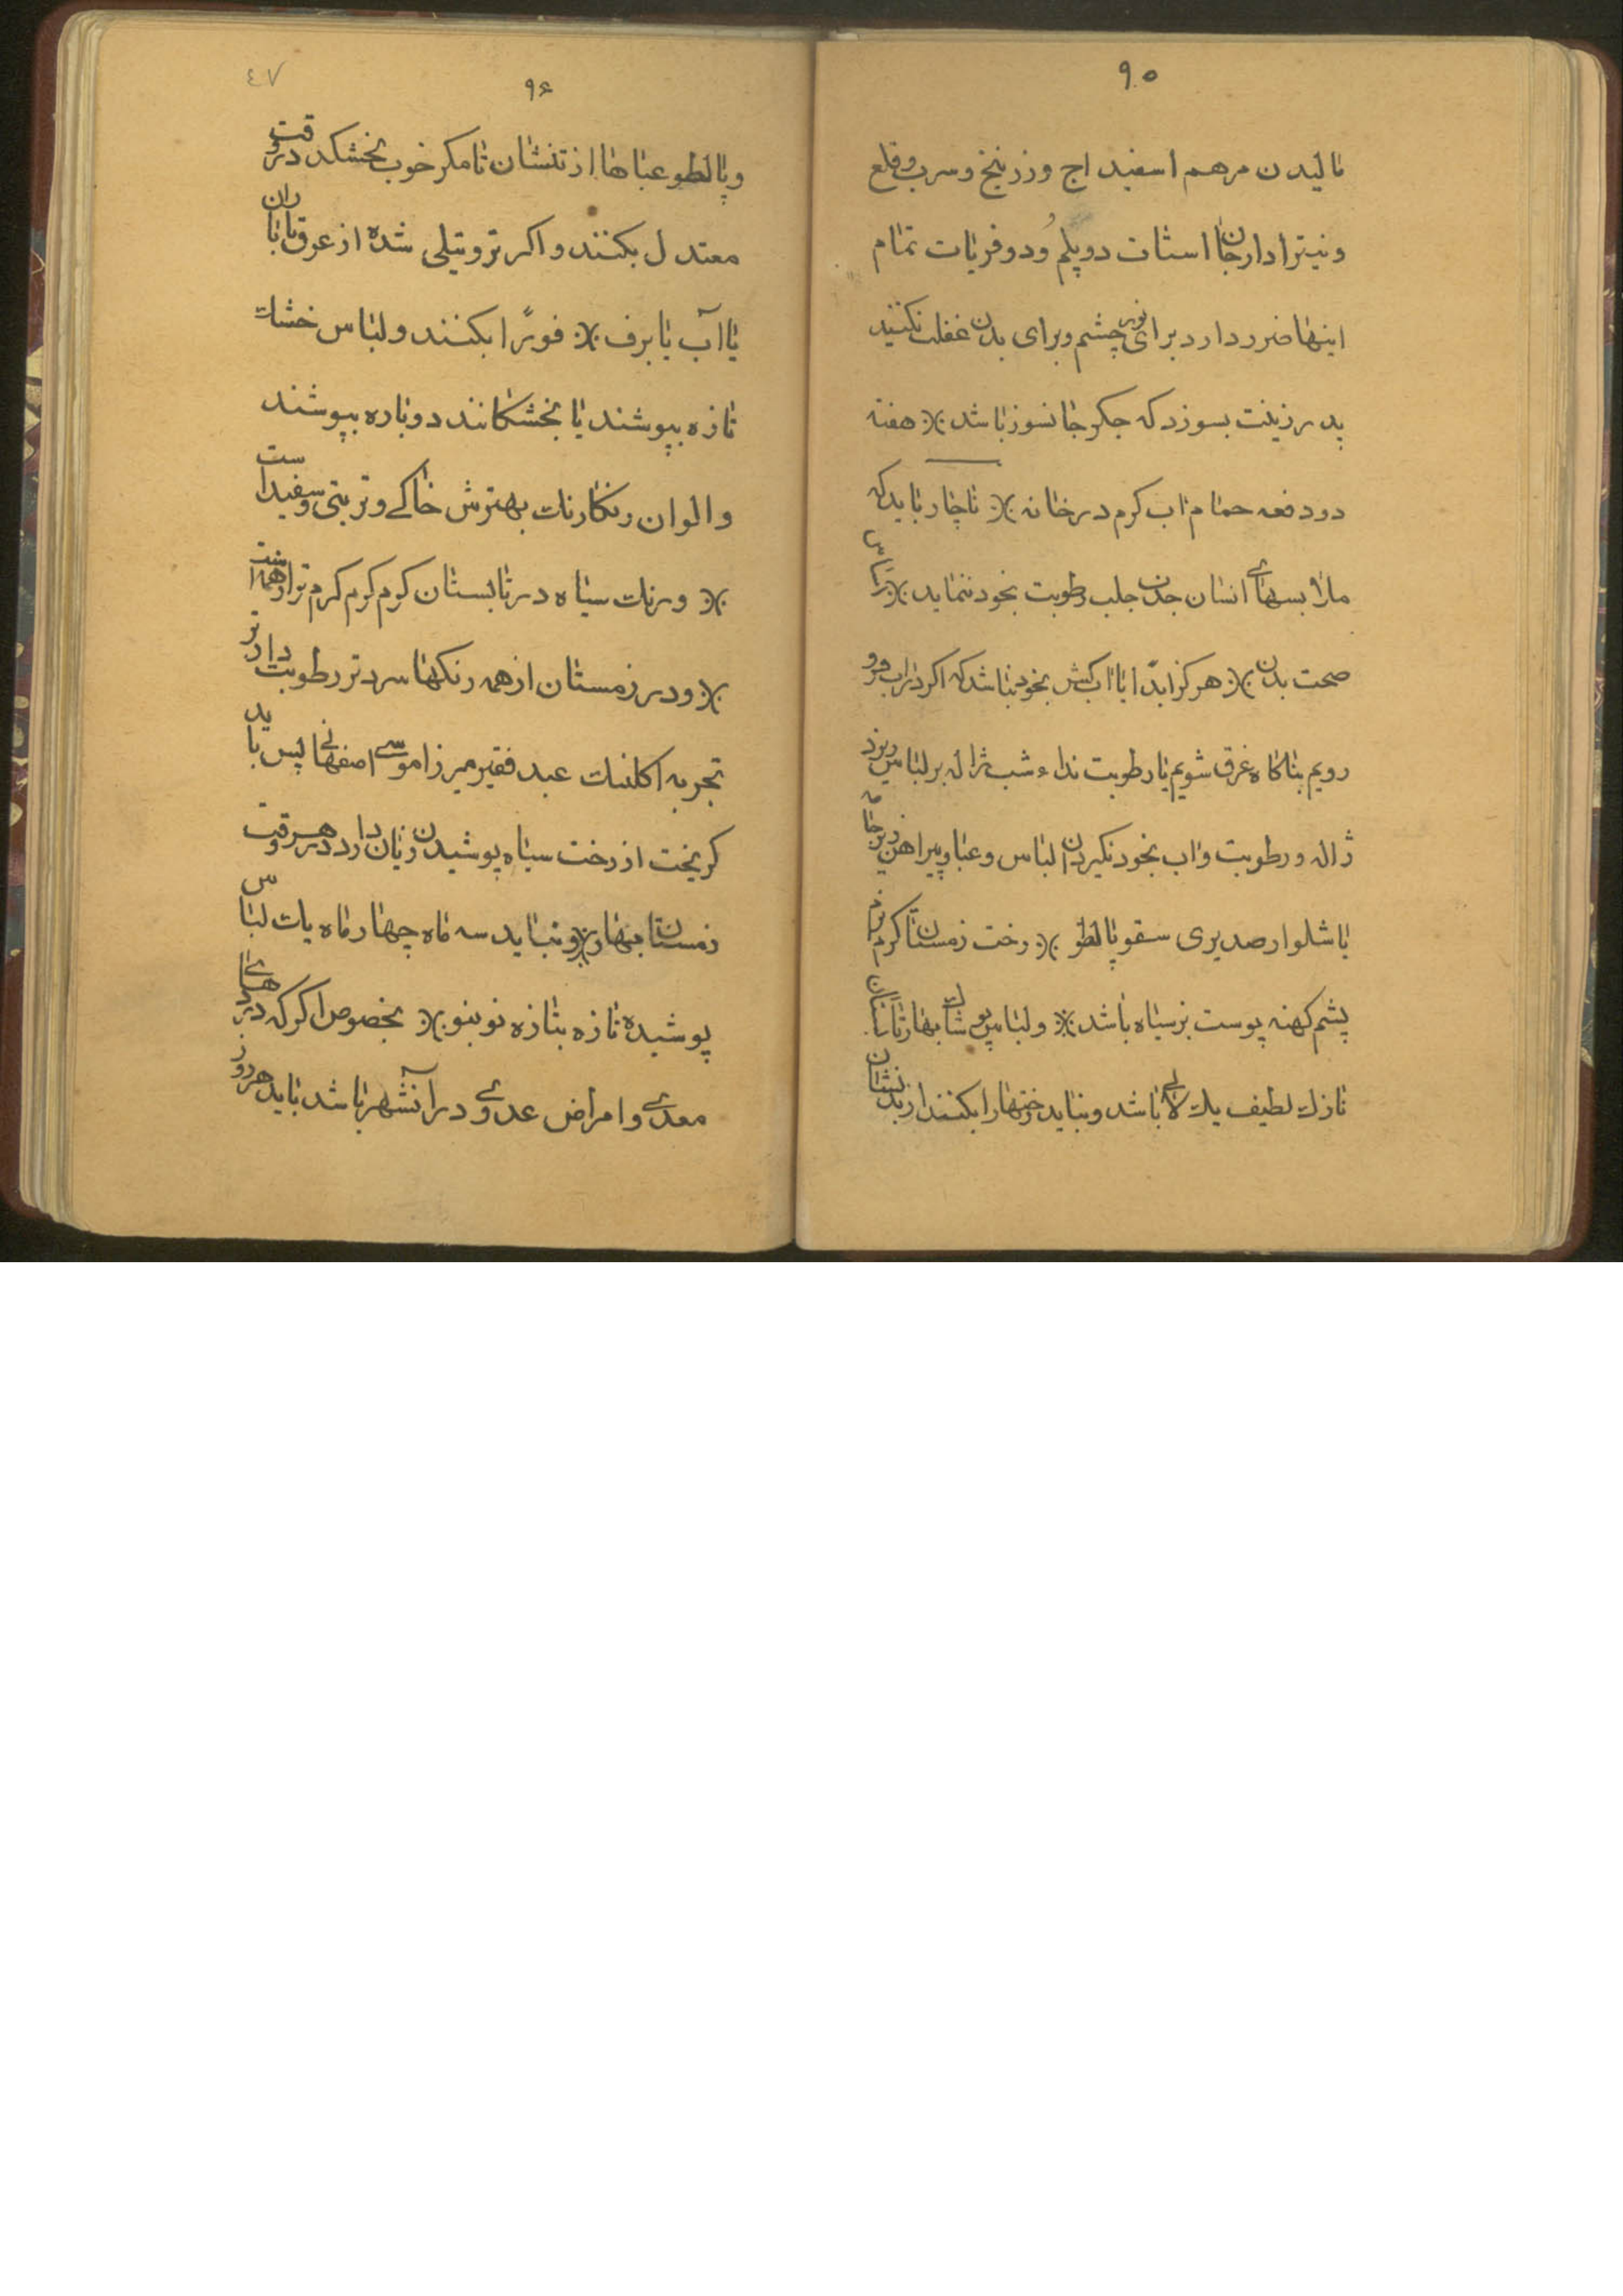 ۹۵
مالیدن مرهم اسفیداج وزرنیخ وسرب وقلع
ونیترا دارجان استات دوپلم ودوفریات تمام
اینها ضرر دارد برای نور چشم وبرای بدن غفلت نکنید
پدر زینت بسوزد که جگر جانسوز باشد ※ هفته
دودفعه حمام اب کرم در خانه ※ ناچار باید که
ملابسهای انسان جذب جلب رطوبت بخود ننماید ※ براس
صحت بدن ※ هرکز ابدًا با اب کش بخود نباشد که اکر دراب فرو
رویم بناکاه غرق شویم یا رطوبت نداء شب ژاله بر لباس ریزد
ژاله ورطوبت واب بخود نکیرد ان لباس وعبا وپیراهن زیرجامه
یا شلوار صدیری سقو پالطو ※ رخت زمستان تا کرم نرم
پشم کهنه پوست بز سیاه باشد ※ ولباس پوشای بهار تابستان
نازک لطیف یک لای باشد ونباید رختهارا بکنند از بدنشان
٤٧
۹۶
وپالطو عباها از تنشان تا مکر خوب بخشکد در وقت
معتدل بکنند واکر تر وتیلی شده از عرق یا باران
یا آب یا برف ※ فورًا بکنند ولباس خشک
تازه بپوشند یا بخشکانند دوباره بپوشند
والوان رنکارنک بهترش خاکے وتربتی وسفید است
※ ورنک سیاه در تابستان کرم کرم کرم تر از همه است
※ ودر زمستان از همه رنکها سردتر رطوبت دارتر
تجربه اکلنک عبد فقیر میرزا موسے اصفهانے پس باید
کریخت از رخت سیاه پوشیدن زیان دارد در هر وقت
زمستان بهار ※ ونباید سه ماه چهار ماه یک لباس
پوشیده تازه بتازه نو بنو ※ بخصوص اکر که دردهاے
معدے وامراض عدوے در آنشهر باشد باید هر روز